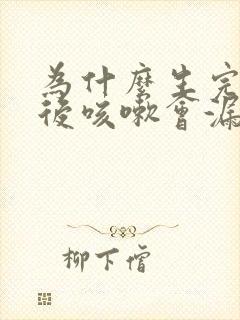 為什麼生完
後咳嗽會漏
柳下僧